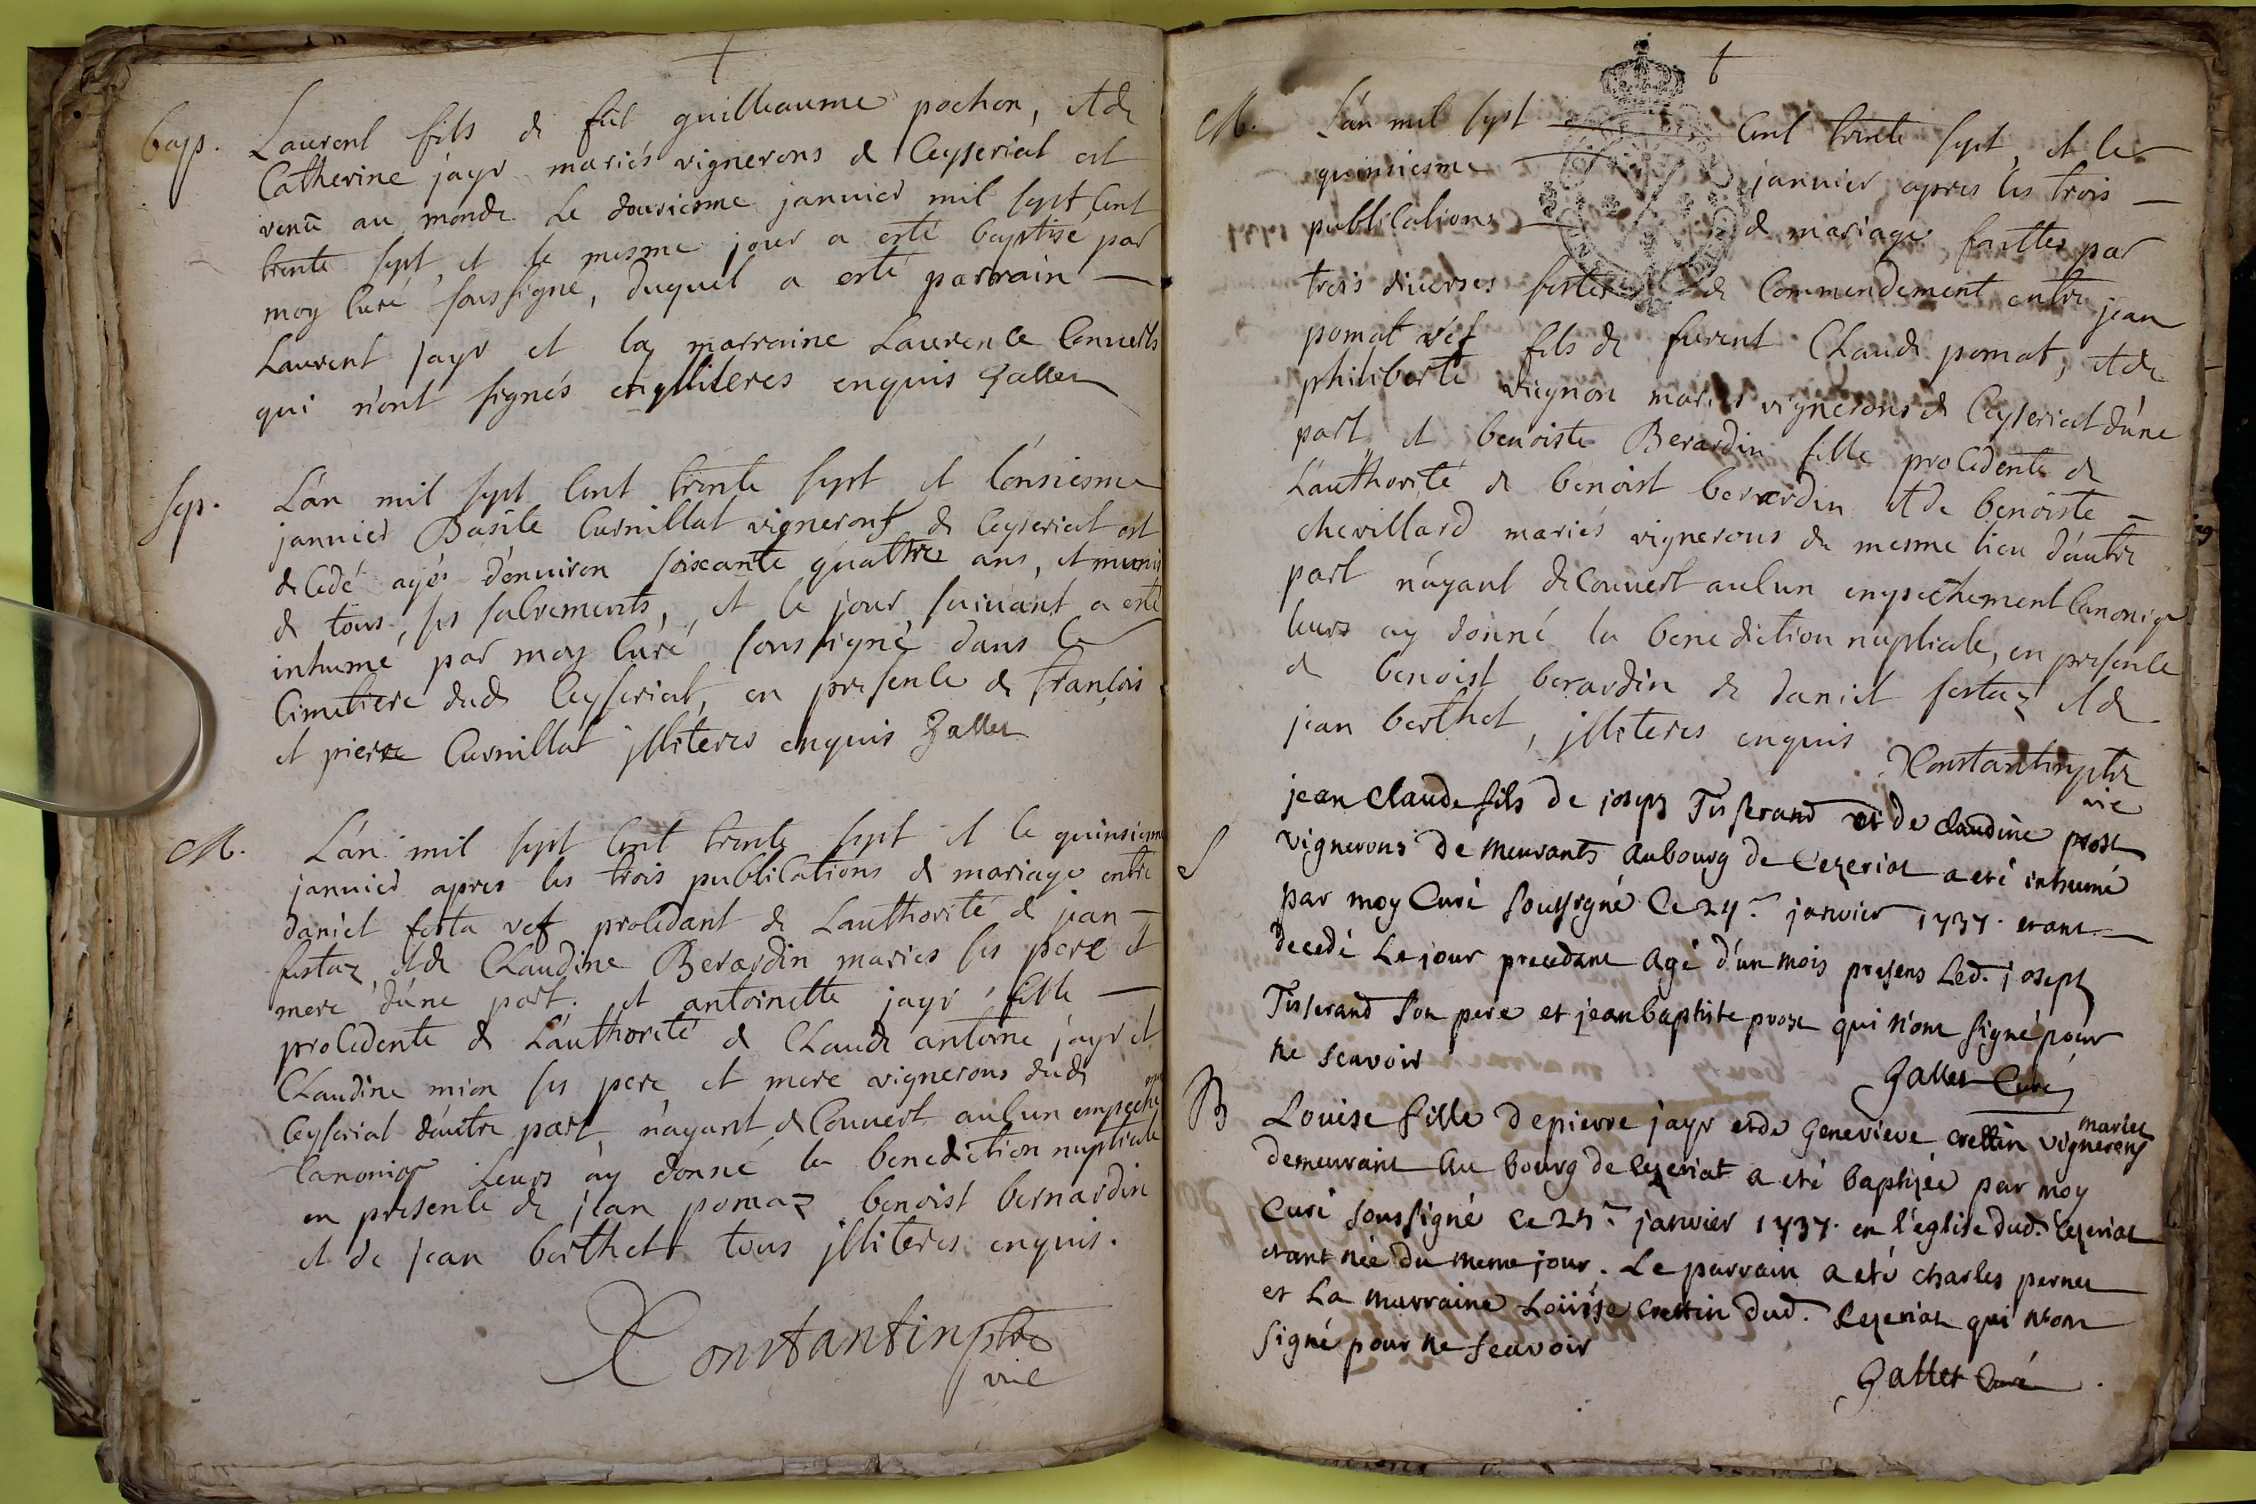 bap. Laurent fils de fût guilleaume pochon, et de
Catherine jayr mariés vignerons de Ceyseriat est
venû au monde le douziesme janvier mil sept cent
trente sept, et le mesme jour a esté baptisé par
moy curé soussigné, duquel a esté parrain —
Laurent jayr et la marraine Laurence Convert
qui n'ont signés illiteres enquis Gallet
sep. L'an mil sept cent trente sept et l'onsiesme
janvier Basile Curnillat vigneront de Ceyseriat est
decedé agé d'environ soixante quattre ans, et muni
de tous ses sacrements, et le jour suivant a esté
inhumé par moy curé soussigné dans le
Cimetiere dud Ceyseriat, en presence de françois
et pierre Curnillat jlliteres enquis Gallet
M. L'an mil sept cent trente sept et le quinsiesme
janvier apres les trois publications de mariage entre
daniel festa vef procedant de L'authorité de jean —
festaz et de Claudine Berardin mariés ses pere et
mere d'une part. et antoinette jayr fille —
procedente de L'authorité de Claude antoine jayr et
Claudine mion ses pere et mere vignerons dud
Ceyseriat d'autre part, n'ayant decouvert aucun empeche
Canoniq Leurs ay donné la benediction nuptiale
en presence de jean pomaz benoist bernardin
et de jean berthet tous jlliteres enquis.
Constantin ptre
vic
M. L'an mil sept cent trente sept, et le
quinsiesme janvier apres les trois —
publications de mariage faittes par
trois diverses festes de Commendement entre jean
pomat vef fils de furent Claude pomat, et de
philiberte vuignon mariés vignerons de Ceyseriat d'une
part, et benoiste Berardin fille procedente de
L'authorité de benoist berardin et de benoiste —
chevillard mariés vignerons du mesme lieu d'autre
part n'ayant decouvert aucun empechement Canoniq
leurs ay donné la benediction nuptiale, en presence
de benoist berardin de daniel festaz et de
jean berthet, jlliteres enquis
Constantin ptre
vic
S jean Claude fils de joseph Tisserand et de claudine prost
vignerons demeurants au bourg de Cezeriat a eté inhumé
par moy Curé soussigné Ce 24.e janvier 1737. etant
decedé Le jour precedant agé d'un mois presens Led. joseph
Tisserand son pere et jean baptiste prost qui n'ont signé pour
ne scavoir
Gallet Curé
B Louise fille de pierre jayr et de Genevieve crettin mariés vignerons
demeurant au bourg de Cezeriat a eté baptizée par moy
Curé soussigné Ce 25.e janvier 1737. en l'eglise dud. Cezeriat
etant née du meme jour. Le parrain a eté charles pernet
et La marraine Loüise crettin dud. Cezeriat qui n'ont
signé pour ne scavoir
Gallet Curé